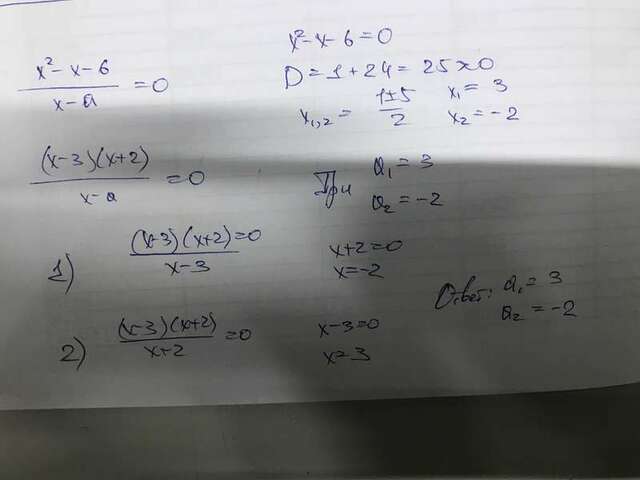 x² - x - 6 = 0
(x² - x - 6)/(x - a) = 0
D = 1 + 24 = 25 > 0
x₁,₂ = (1±5)/2 x₁ = 3
x₂ = -2
((x-3)(x+2))/(x-a) = 0
При a₁ = 3
a₂ = -2
1) ((x-3)(x+2)=0)/(x-3) x+2=0
x=-2
Ответ: a₁ = 3
a₂ = -2
2) ((x-3)(x+2))/(x+2) = 0 x-3=0
x=3